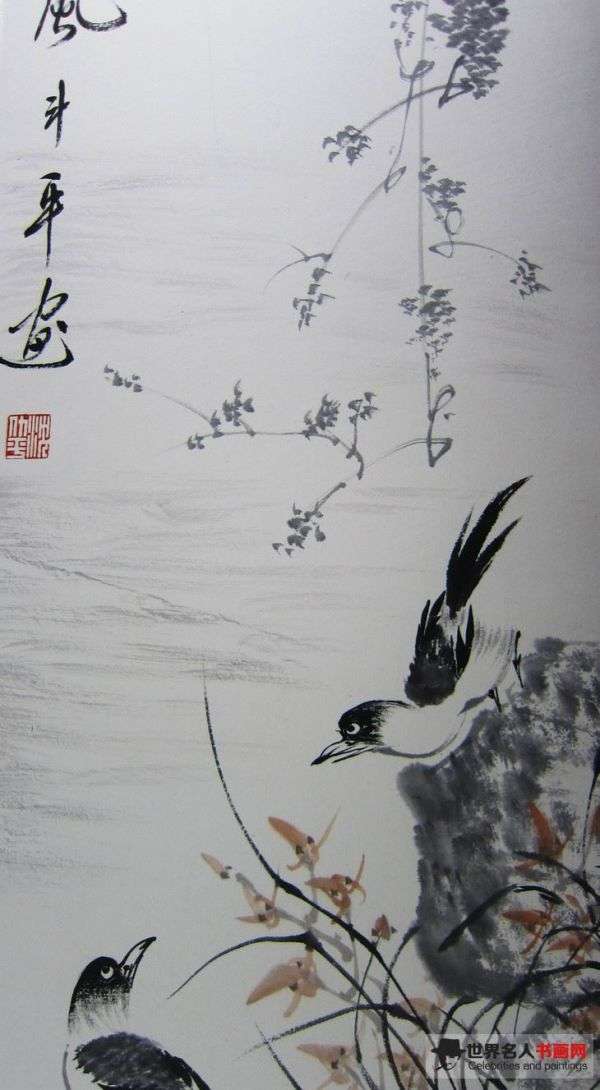 風
斗
平
画
世界名人书画网
Celebrities and paintings